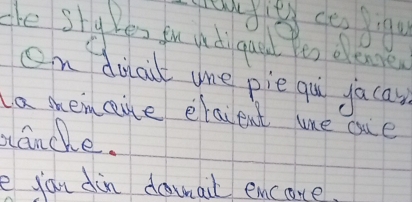 ces figu
de styles en indiquant les élémen
On dirait une pie qui jacass
la mémoire étaient une oie
blanche.
e jardin dormait encore.